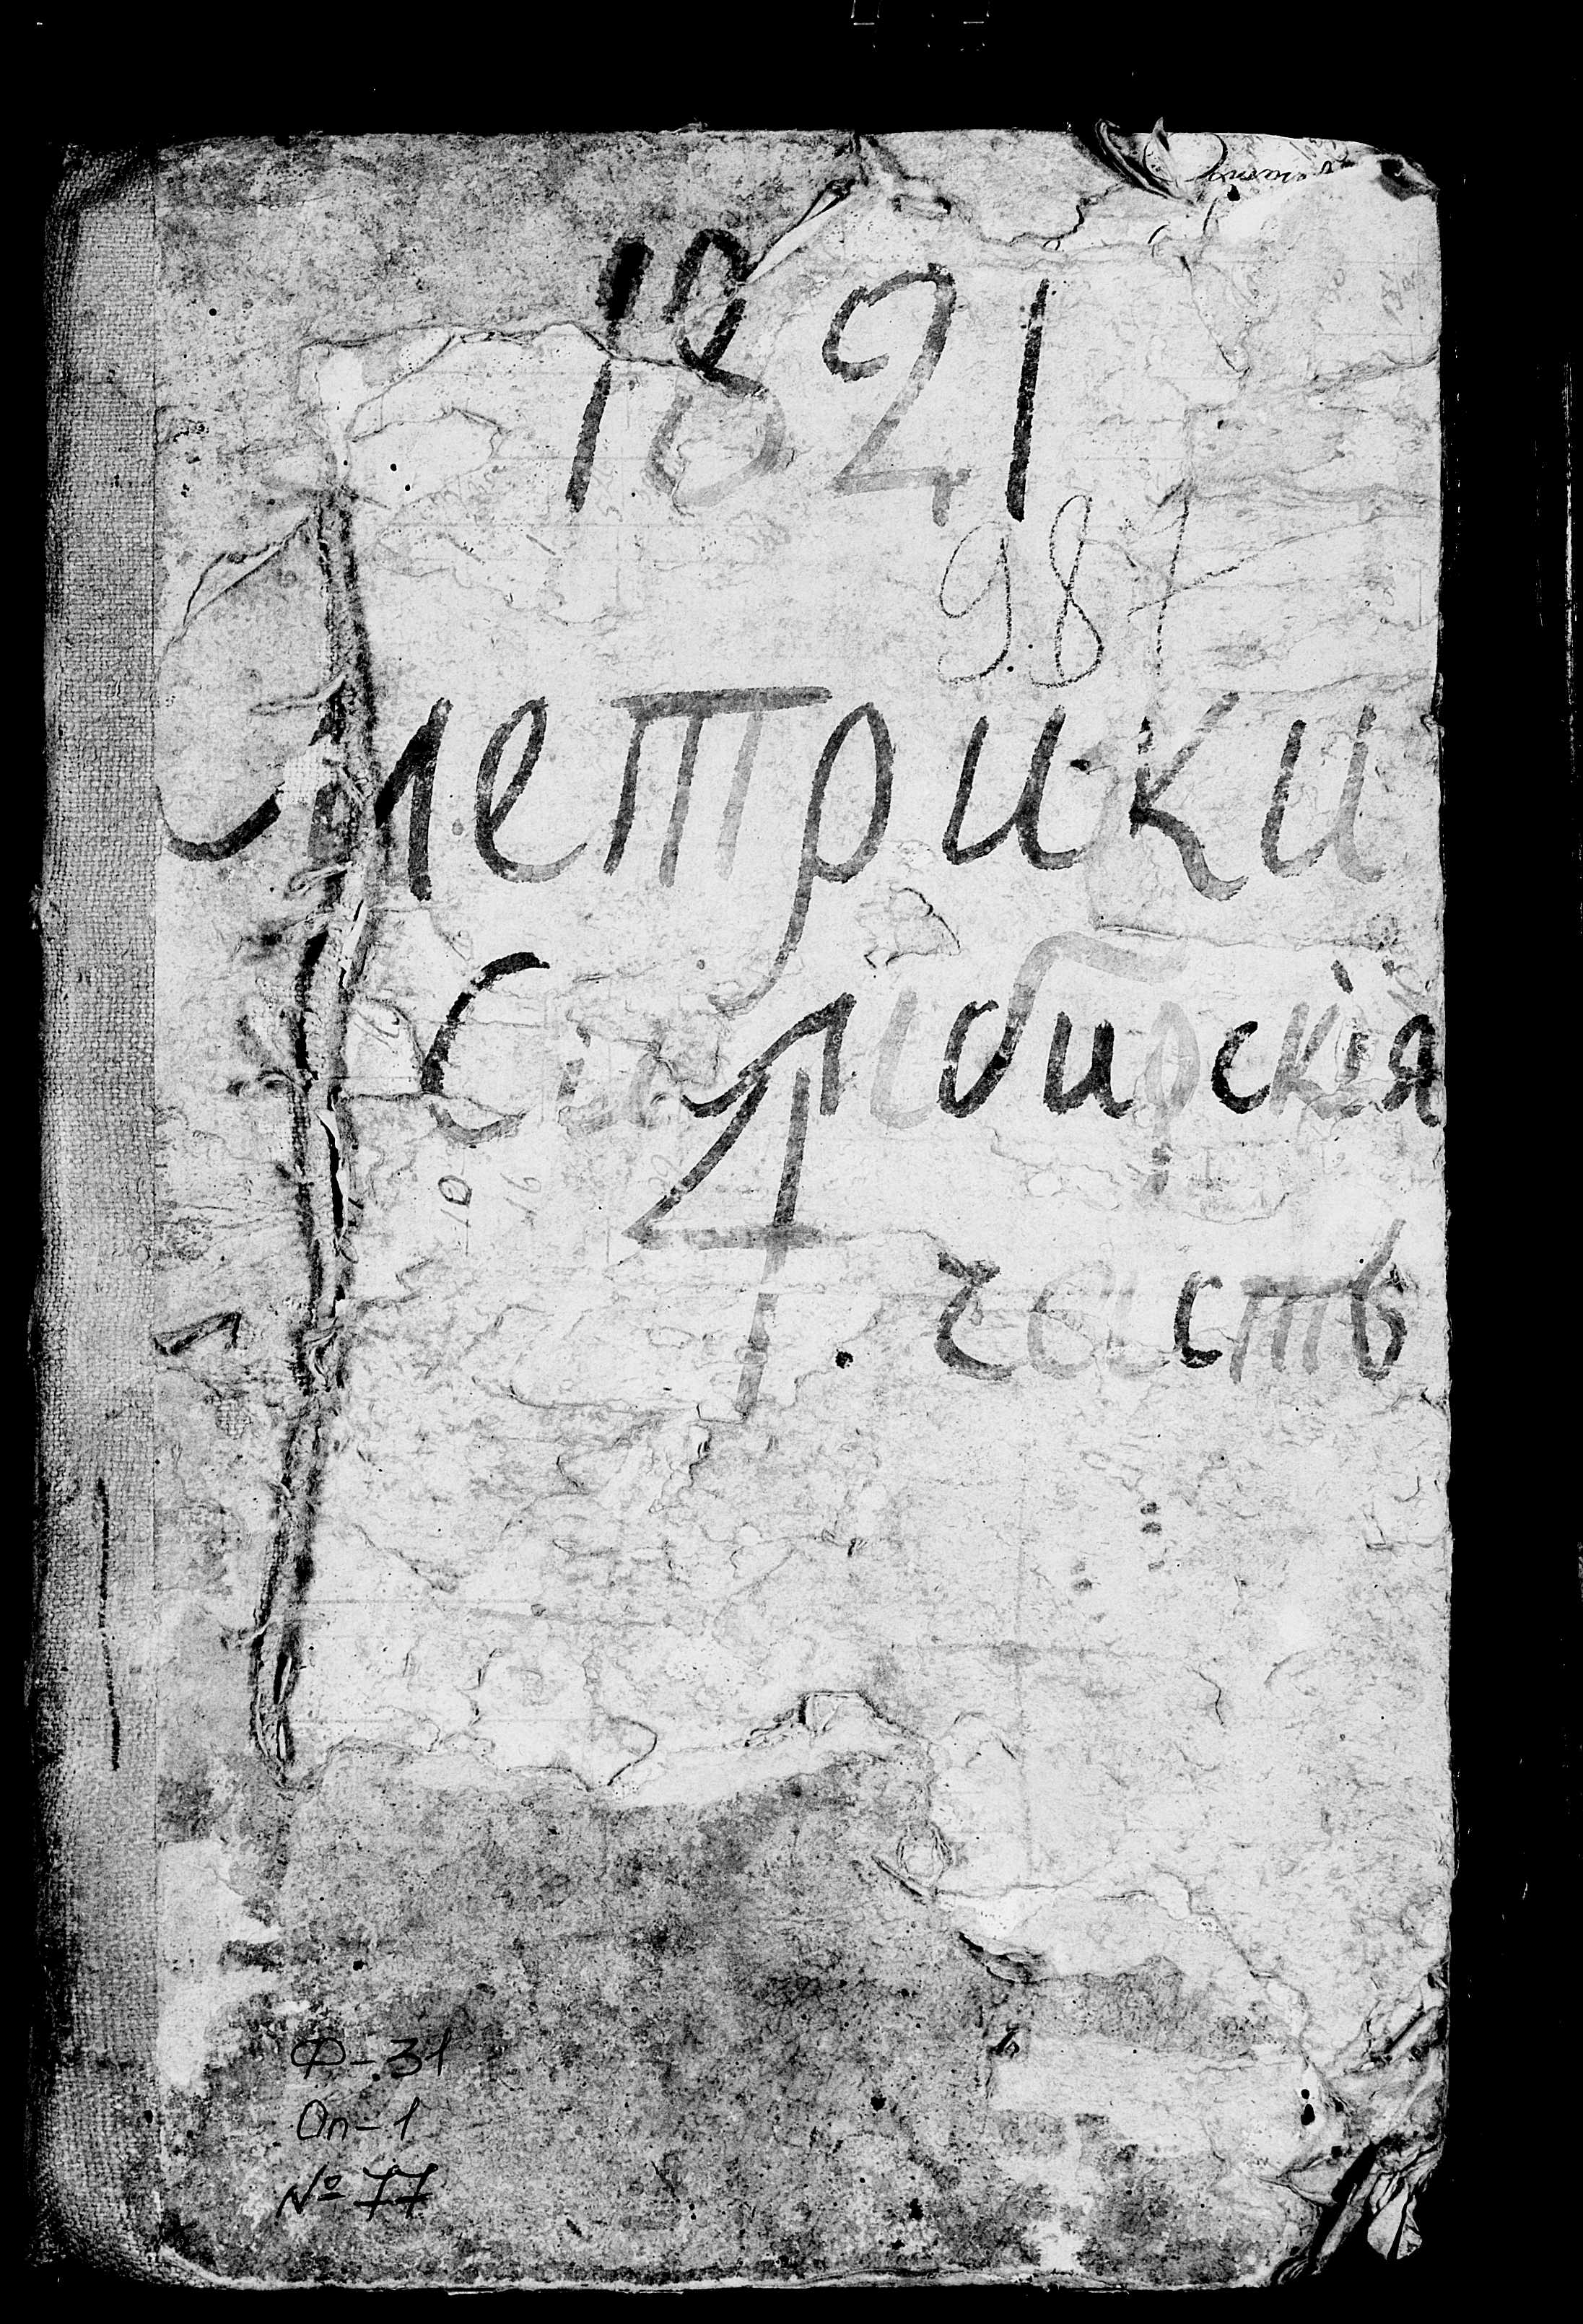 1821
987
Метрики
Симбирскія
4. часть
Ф-31
Оп-1
№ 77